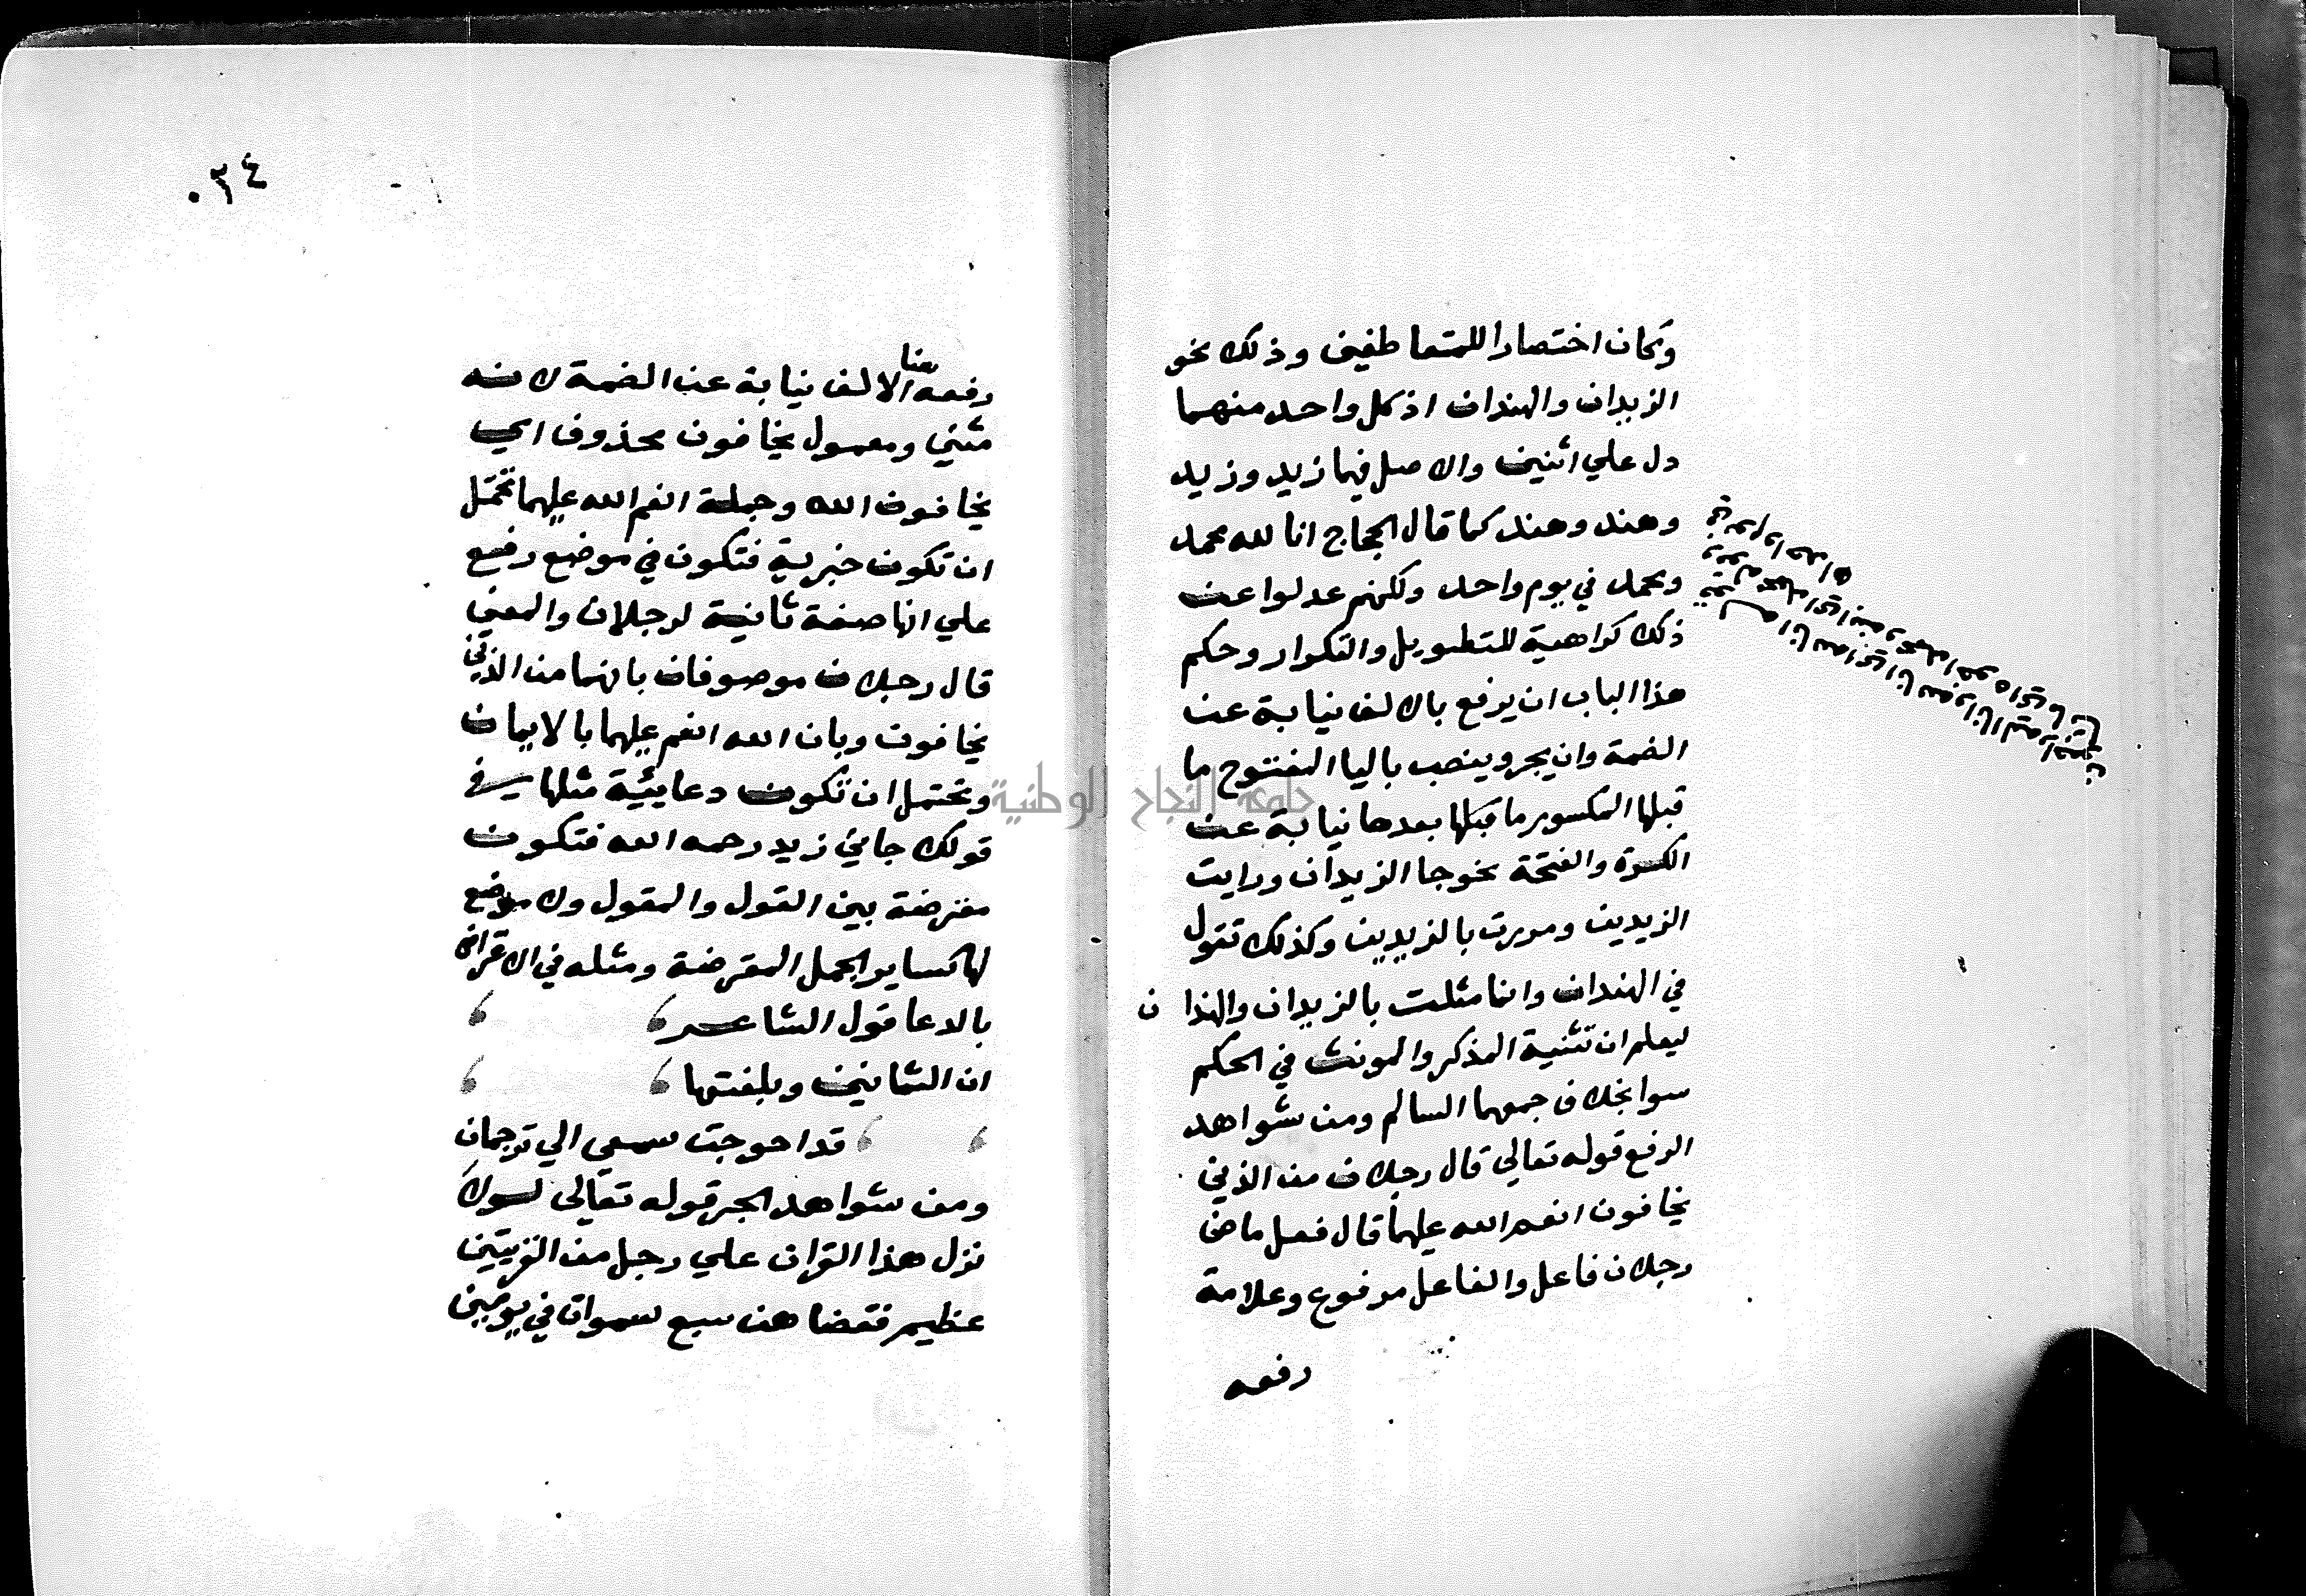 وكان اختصارا للمتعاطفين وذلك نحو
الزيدان والهندان اذ كل واحد منهما
دل علي اثنين والاصل فيهما زيد وزيد
وهند وهند كما قال الحجاج انا لله محمد
ومحمد في يوم واحد ولكنهم عدلوا عن
ذلك كراهية للتطويل والتكرار وحكم
هذا الباب ان يرفع بالالف نيابة عن
الضمة وان يجر وينصب باليا المفتوح ما
قبلها المكسور ما قبلها بعدها نيابة عن
الكسرة والفتحة نحو جا الزيدان ورايت
الزيدين ومررت بالزيدين وكذلك تقول
في الهندان وانما مثلت بالزيدان والهندا ن
ليعلم ان تثنية المذكر والمونث في الحكم
سوا بخلاف جمعهما السالم ومن شواهد
الرفع قوله تعالي قال رجلان من الذين
يخافون انعم الله عليهما قال فعل ماض
رجلان فاعل والفاعل مرفوع وعلامة
رفعه
٠٣٤
رفعه هنا الالف نيابة عن الضمة لانه
مثني ومعمول يخافون محذوف اي
يخافون الله وجملة انعم الله عليهما تحتمل
ان تكون خبرية فتكون في موضع رفع
علي انها صفة ثانية لرجلان والمعني
قال رجلان موصوفان بانهما من الذين
يخافون وبان الله انعم عليهما بالايمان
وتحتمل ان تكون دعايئية مثلها في
قولك جاني زيد رحمه الله فتكون
معترضة بين القول والمقول ولا موضع
لها كساير الجمل المعترضة ومثله في الاعتراض
بالدعا قول الشاعر
ان الثمانين وبلغتها
قد احوجت سمعي الي ترجمان
ومن شواهد الجر قوله تعالي لسولا
نزل هذا القران علي رجل من القريتين
عظيم فقضاهن سبع سموات في يومين
جامعة النجاح الوطنية